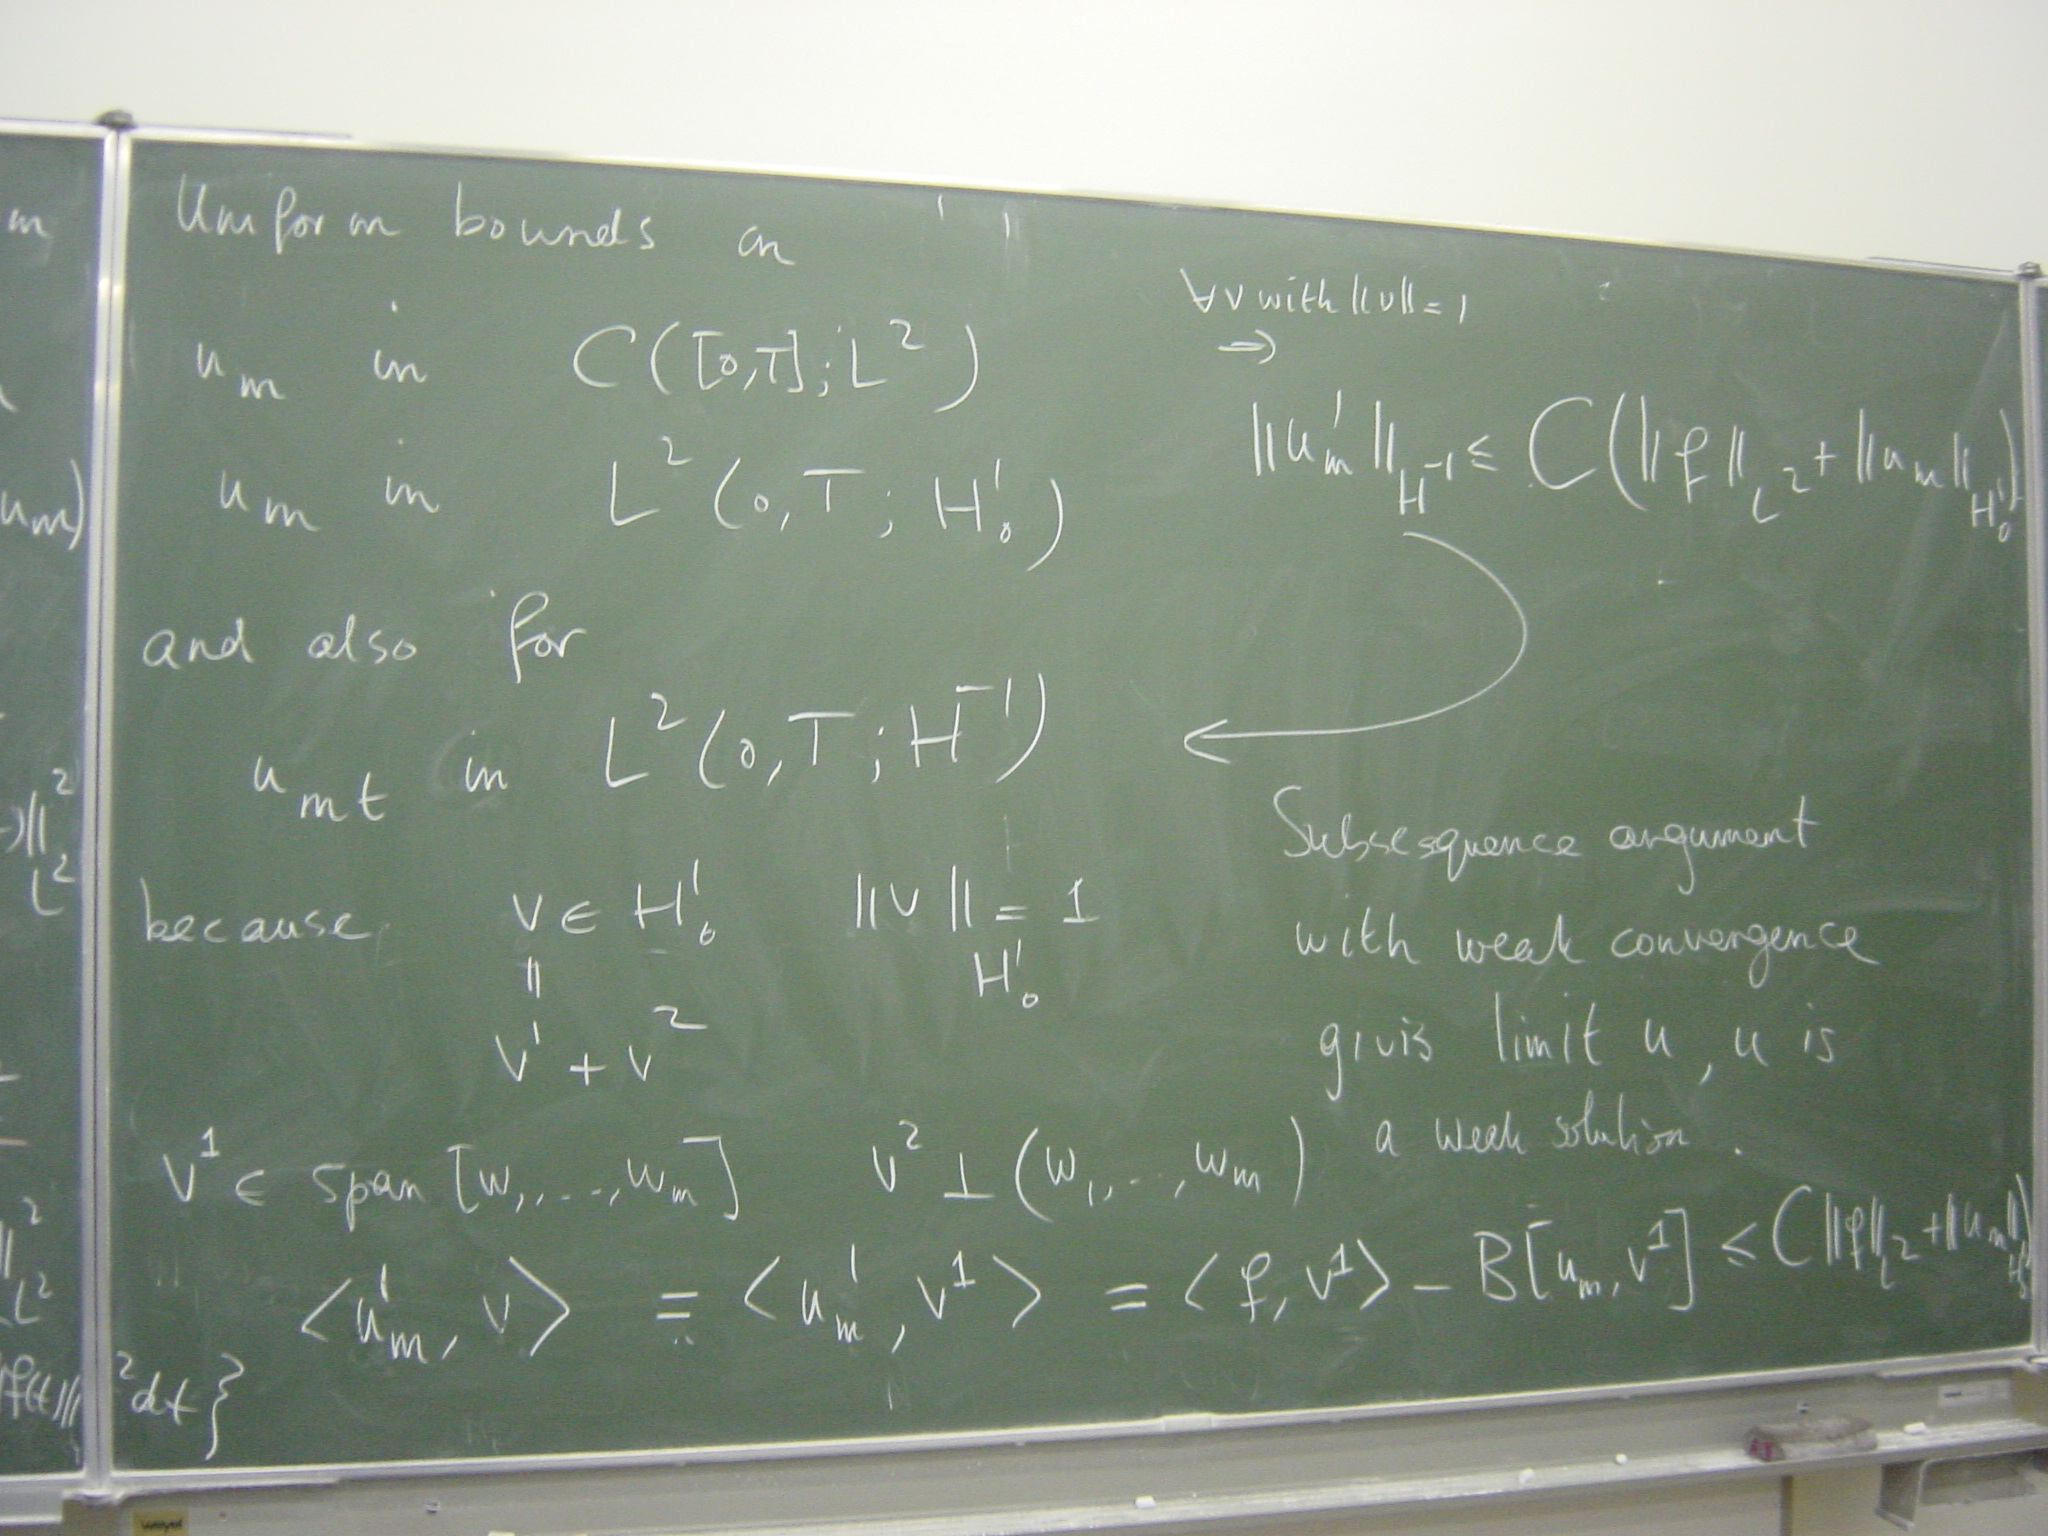 Uniform bounds on
u_m in C([0,T];L²)
u_m in L²(0,T; H¹₀)
and also for
u_mt in L²(0,T; H⁻¹)
because v ∈ H¹₀ ‖v‖_H¹₀ = 1
‖
v¹ + v²
v¹ ∈ span [w₁,...,w_m] v² ⊥ (w₁,..,w_m)
<u'_m, v> = <u'_m, v¹> = <f, v¹> - B[u_m, v¹] ≤ C‖f‖_L² + ‖u_m‖_H¹₀)
∀ v with ‖v‖ = 1
⇒
‖u'_m‖_H⁻¹ ≤ C(‖f‖_L² + ‖u_m‖_H¹₀)
Subsesquence argument
with weak convergence
givis limit u, u is
a weak solution.
m
u_m)
)‖²_L²
‖²_L²
‖f(t)‖² dt}